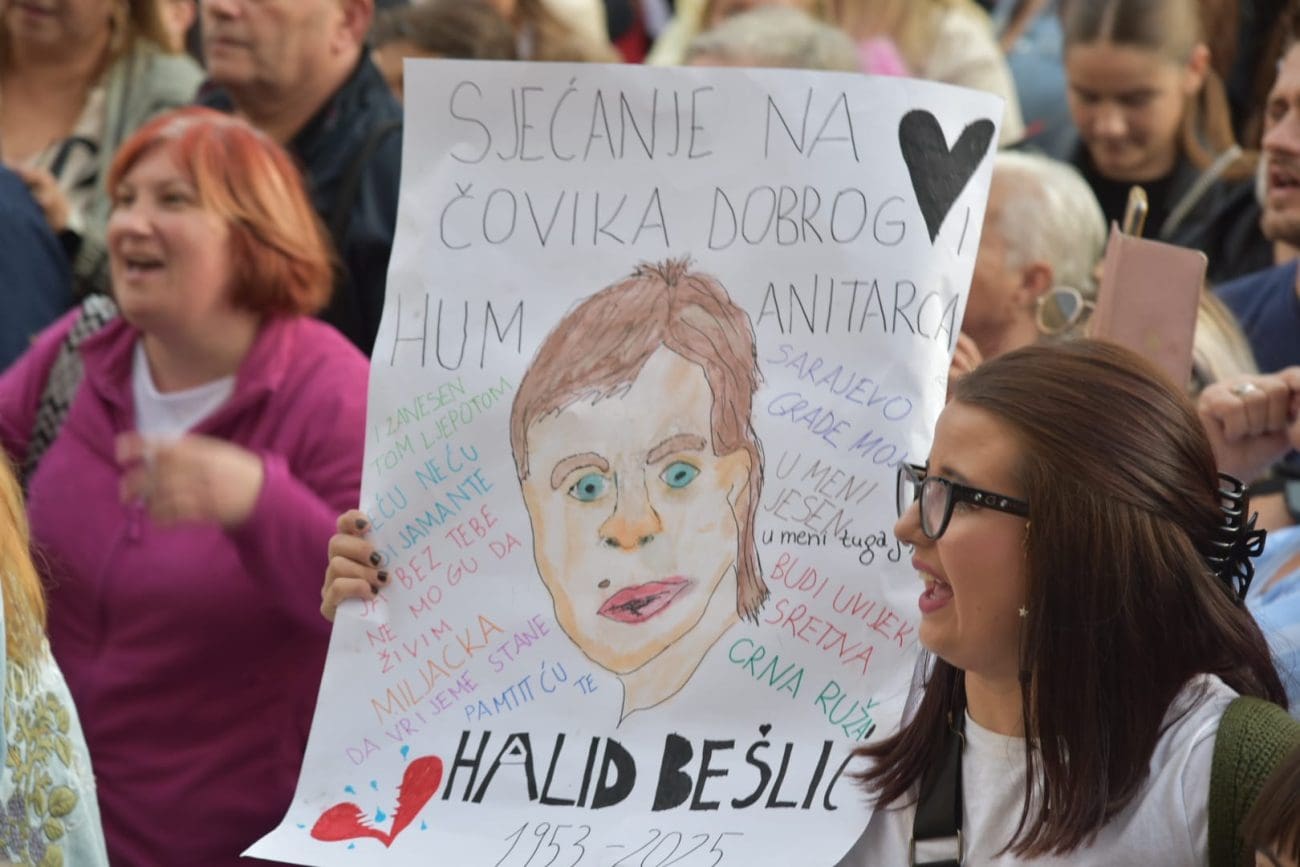 SJEĆANJE NA
ČOVIKA DOBROG I
HUMANITARCA
I ZANESEN
TOM LJEPOTOM
NEĆU
DIJAMANTE
JA BEZ TEBE
NE MOGU DA
ŽIVIM
MILJACKA
DA VRIJEME STANE
PAMTIT ĆU TE
SARAJEVO
GRADE MOJ
U MENI
JESEN
u meni tuga
BUDI UVIJEK
SRETNA
CRNA RUŽA
HALID BEŠLIĆ
1953-2025